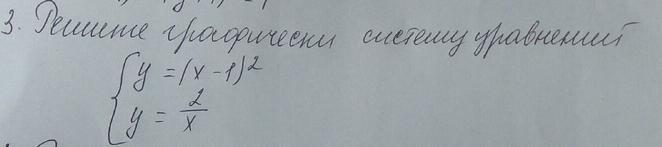 3. Решите графически систему уравнений
{ y = (x - 1)²
{ y = 2/x